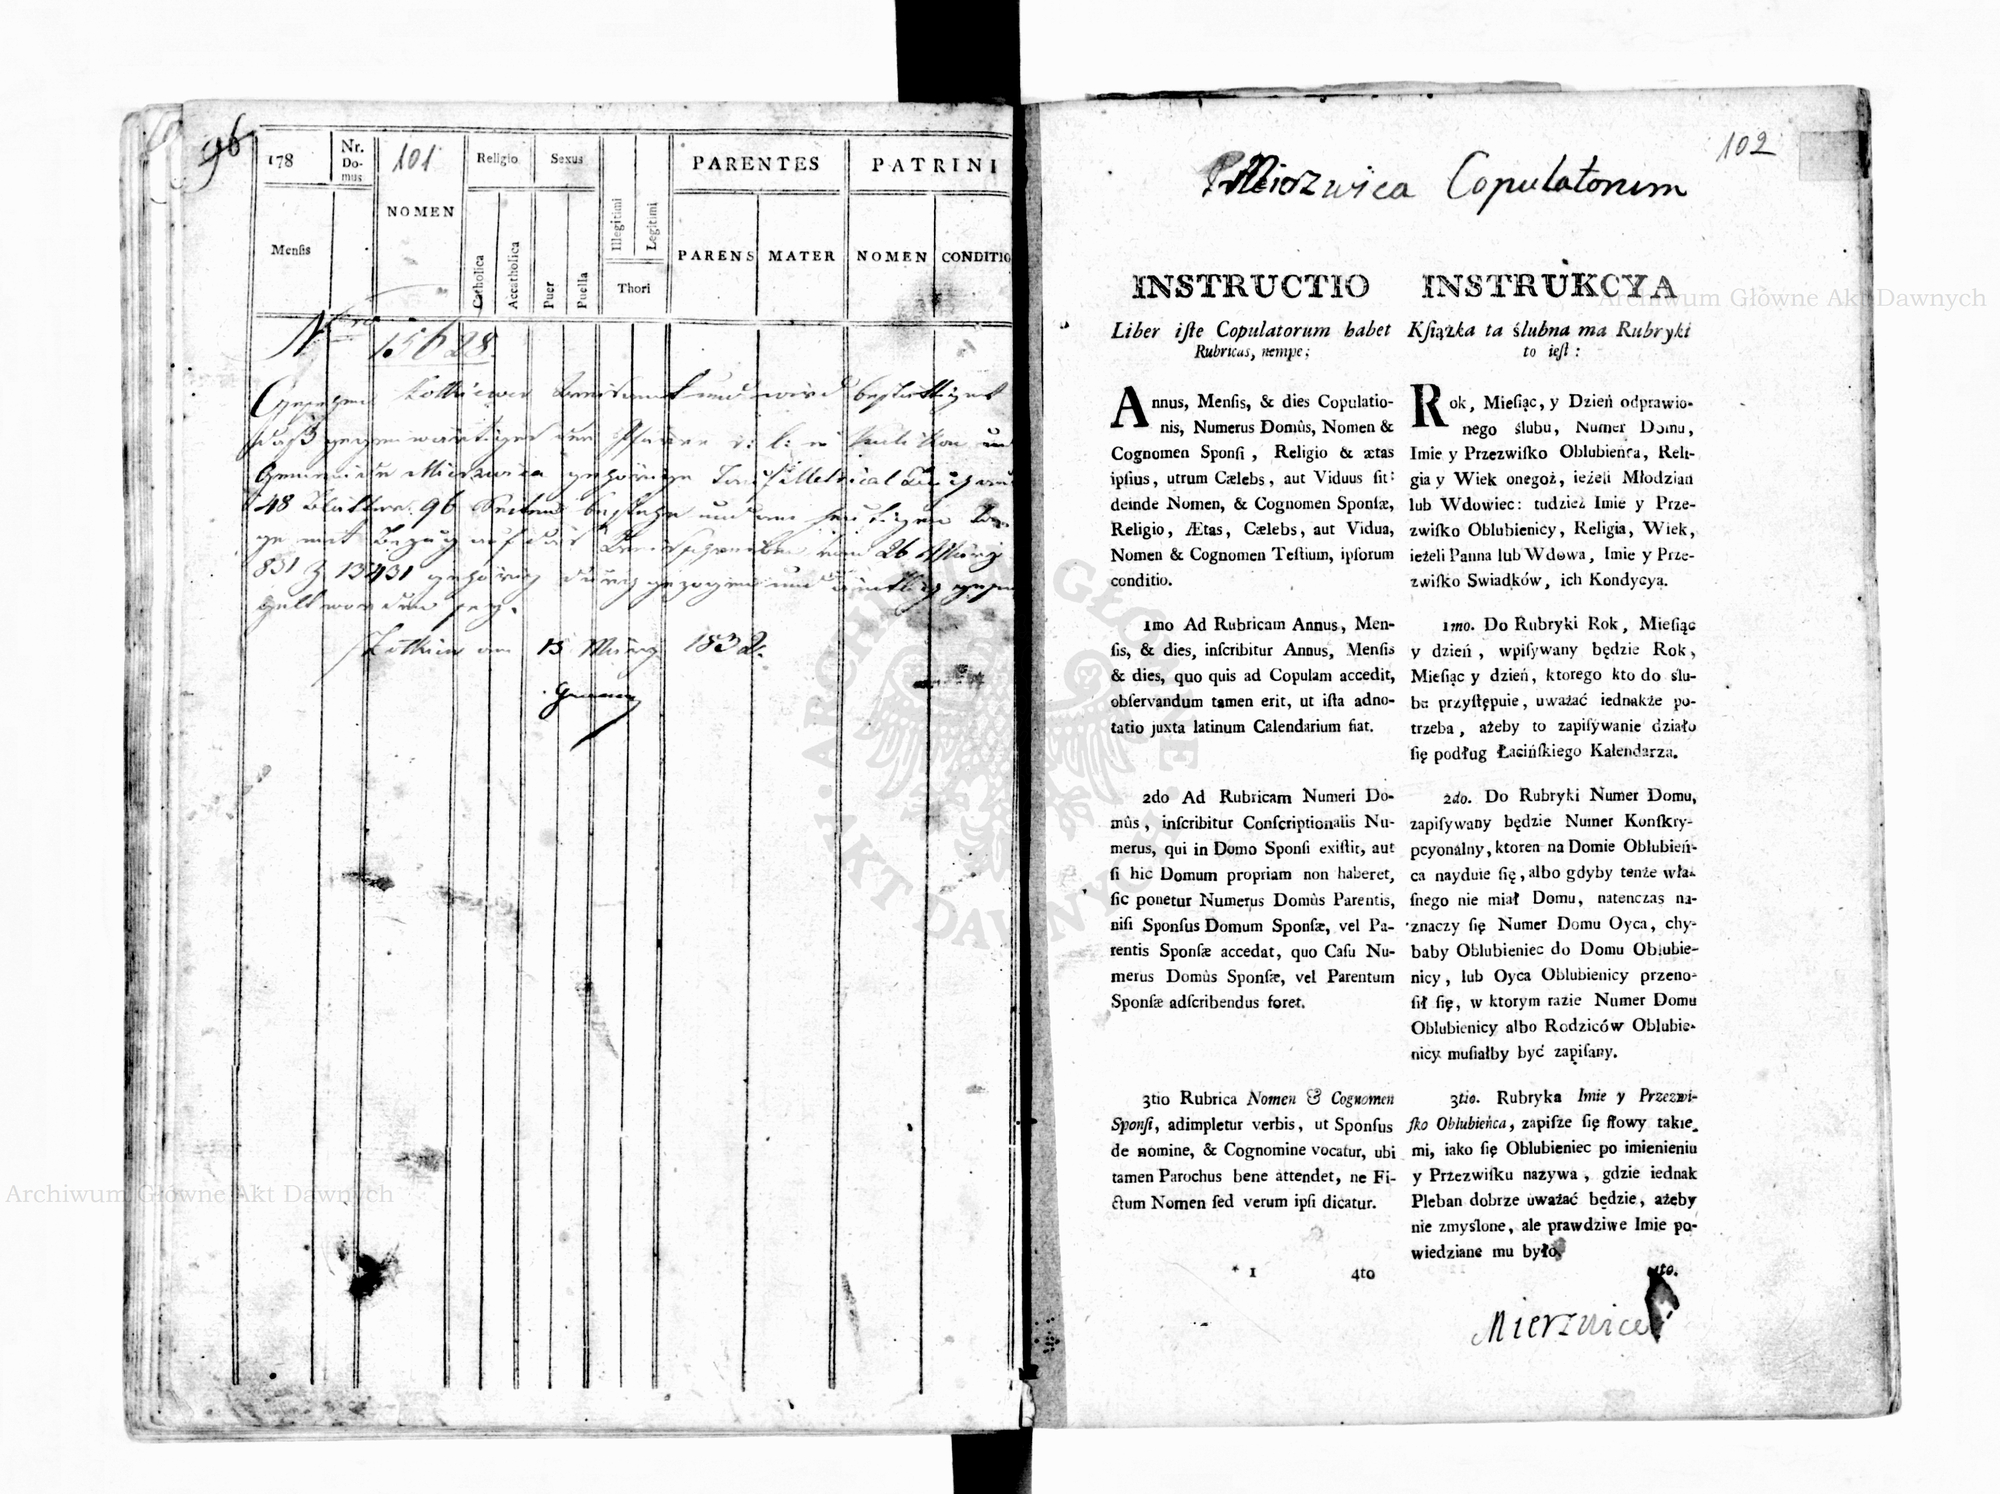 96
178
Nr.
Do-
mus
101
NOMEN
Religio
Sexus
PARENTES
PATRINI
Menſis
Catholica
Accatholica
Puer
Puella
Illegitimi
Legitimi
Thori
PARENS
MATER
NOMEN
CONDITIO
Nro 15628.
Zolkiewer und wird
gegenwärtiges der Pfarre
Gemeinde Mierzwica gehörige
48 Blätter 96 Seiten
26 März
831 Z 13431 gehörig durchgezogen und
worden sey.
Zolkiew am 13 März 1832.
102
Mierzwica Copulatorum
INSTRUCTIO
Liber iſte Copulatorum habet
Rubricas, nempe;
Annus, Menſis, & dies Copulatio-
nis, Numerus Domûs, Nomen &
Cognomen Sponſi, Religio & ætas
ipſius, utrum Cælebs, aut Viduus ſit:
deinde Nomen, & Cognomen Sponſæ,
Religio, Ætas, Cælebs, aut Vidua,
Nomen & Cognomen Teſtium, ipſorum
conditio.
1mo Ad Rubricam Annus, Men-
ſis, & dies, inſcribitur Annus, Menſis
& dies, quo quis ad Copulam accedit,
obſervandum tamen erit, ut iſta adno-
tatio juxta latinum Calendarium fiat.
2do Ad Rubricam Numeri Do-
mûs, inſcribitur Conſcriptionalis Nu-
merus, qui in Domo Sponſi exiſtit, aut
ſi hic Domum propriam non haberet,
ſic ponetur Numerus Domûs Parentis,
niſi Sponſus Domum Sponſæ, vel Pa-
rentis Sponſæ accedat, quo Caſu Nu-
merus Domûs Sponſæ, vel Parentum
Sponſæ adſcribendus foret.
3tio Rubrica Nomen & Cognomen
Sponſi, adimpletur verbis, ut Sponſus
de nomine, & Cognomine vocatur, ubi
tamen Parochus bene attendet, ne Fi-
ctum Nomen ſed verum ipſi dicatur.
* 1
4to
INSTRUKCYA
Kſiążka ta ślubna ma Rubryki
to ieſt:
Rok, Mieſiąc, y Dzień odprawio-
nego ślubu, Numer Domu,
Imie y Przezwiſko Oblubieńca, Reli-
gia y Wiek onegoż, ieżeli Młodzian
lub Wdowiec: tudzież Imie y Prze-
zwiſko Oblubienicy, Religia, Wiek,
ieżeli Panna lub Wdowa, Imie y Prze-
zwiſko Swiadków, ich Kondycya.
1mo. Do Rubryki Rok, Mieſiąc
y dzień, wpiſywany będzie Rok,
Mieſiąc y dzień, ktorego kto do ślu-
bu przyſtępuie, uważać iednakże po-
trzeba, ażeby to zapiſywanie działo
ſię podług Łacińſkiego Kalendarza.
2do. Do Rubryki Numer Domu,
zapiſywany będzie Numer Konſkry-
pcyonalny, ktoren na Domie Oblubień-
ca nayduie ſię, albo gdyby tenże wła-
ſnego nie miał Domu, natenczas na-
znaczy ſię Numer Domu Oyca, chy-
baby Oblubieniec do Domu Oblubie-
nicy, lub Oyca Oblubienicy przeno-
ſił ſię, w ktorym razie Numer Domu
Oblubienicy albo Rodziców Oblubie-
nicy muſiałby być zapiſany.
3tio. Rubryka Imie y Przezwi-
ſko Oblubieńca, zapiſze ſię ſłowy takie-
mi, iako ſię Oblubieniec po imienieniu
y Przezwiſku nazywa, gdzie iednak
Pleban dobrze uważać będzie, ażeby
nie zmyślone, ale prawdziwe Imie po-
wiedziane mu było.
4to.
Mierzwica
Archiwum Główne Akt Dawnych
Archiwum Główne Akt Dawnych
ARCHIWUM GŁÓWNE AKT DAWNYCH